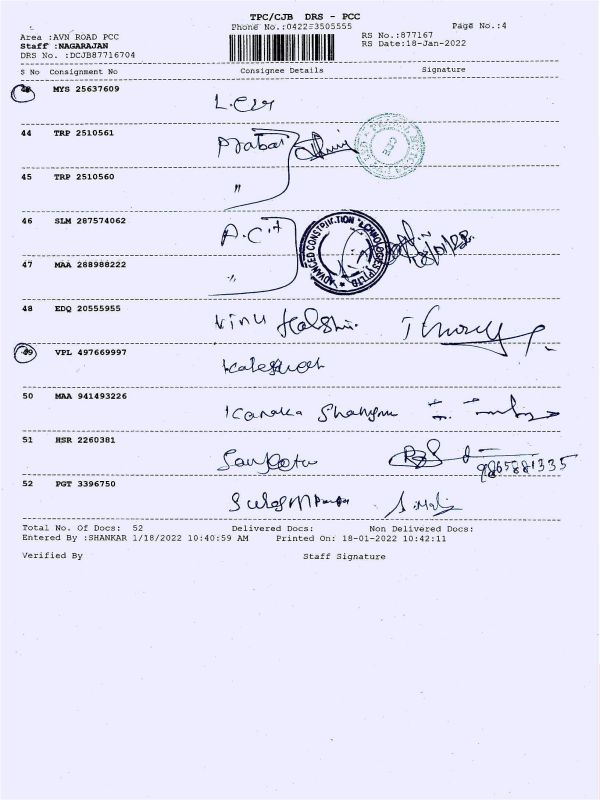 TPC/CJB DRS - PCC
Phone No.:0422-3505555 Page No.:4
Area :AVN ROAD PCC RS No.:877167
Staff :NAGARAJAN RS Date:18-Jan-2022
DRS No. :DCJB87716704
S No Consignment No Consignee Details Signature
MYS 25637609
44 TRP 2510561 Prabat
45 TRP 2510560 "
46 SLM 287574062 A.C.T
ADVANCED CONSTRUCTION TECHNOLOGIES (P) LTD.
47 MAA 288988222 "
48 EDQ 20555955 Vinu
49 VPL 497669997
50 MAA 941493226 Kanaka
51 HSR 2260381 9865581335
52 PGT 3396750
Total No. Of Docs: 52 Delivered Docs: Non Delivered Docs:
Entered By :SHANKAR 1/18/2022 10:40:59 AM Printed On: 18-01-2022 10:42:11
Verified By Staff Signature